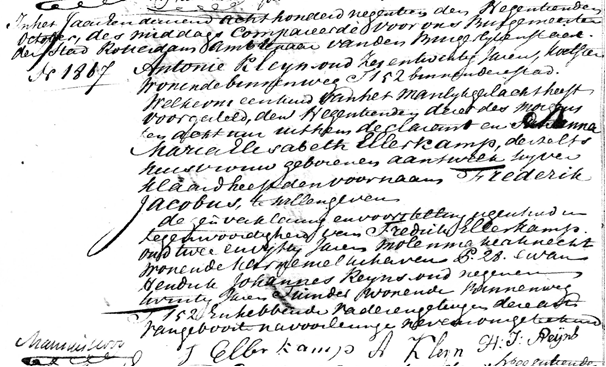 In het Jaar Een duizend acht honderd negentien den Negentienden
October, des middags Compareerde voor ons Burgemeester
der Stad Rotterdam Ambtenaar van den Burgerlyken Staat.
No 1867 Antonie Kleyn oud zes en twintig Jaren,
wonende binnenweg T 152 binnen deze stad.
Welke ons een kind van het manlyk geslacht heeft
voorgesteld, den Negentienden dezer des morgens
ten acht uur uit hem declarant en Johanna
Maria Elisabeth Ellerkamp, deszelfs
huisvrouw geboren en aan hetwelk hy ver
klaard heeft den voornaam Frederik
Jacobus, te willen geven
de gem verklaring en voorstelling geschied in
tegenwoordigheid van Fredrik Ellerkamp.
oud twee en vyftig Jaren molenmakersknecht
wonende E. 28. & van
Hendrik Johannes Reyns oud negen en
twintig Jaren Tuinder wonende Binnenweg
T 152. En hebben de vader en getuigen deze acte
na voorlezing nevens ons getekend
F Ellerkamp A Kleyn H: J: Reijns